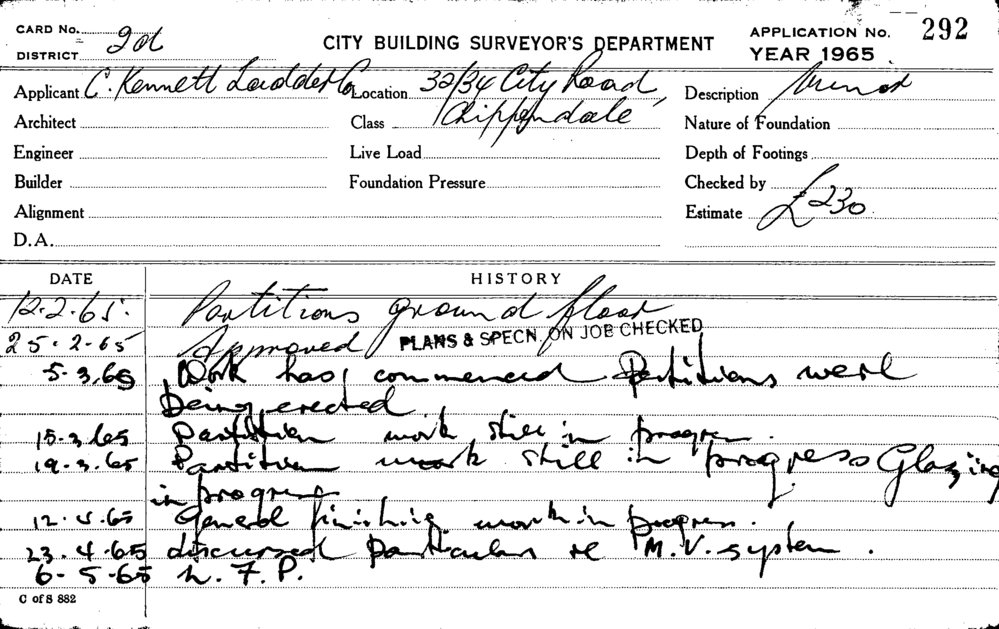 CARD No. 2d
DISTRICT
CITY BUILDING SURVEYOR'S DEPARTMENT
APPLICATION No. 292
YEAR 1965
Applicant C. Kennett Ladder Co Location 32/34 City Road, Description Minor
Architect Class Chippendale Nature of Foundation
Engineer Live Load Depth of Footings
Builder Foundation Pressure Checked by
Alignment Estimate £230
D.A.
DATE HISTORY
12.2.65. Partitions ground floor
25.2-65 Approved PLANS & SPECN. ON JOB CHECKED
5-3.65 Work has commenced Partitions were
being erected.
15-3.65 Partition work still in progress.
19.3.65 Partition work still in progress Glazing
in progress
12.4.65 General finishing work in progress.
23.4.65 discussed particulars re M.V. system.
6-5-65 N.F.P.
C of S 882